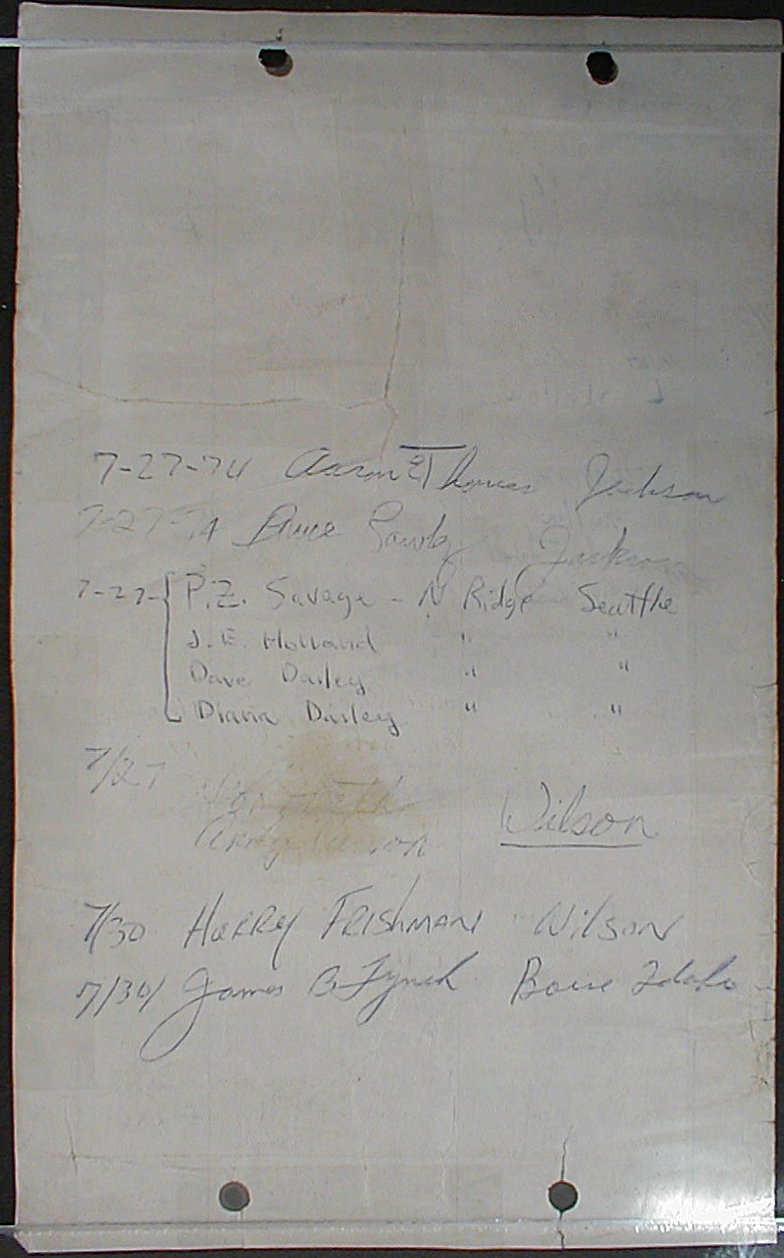 7-27-74 Aaron Thomas Jackson
7-27-74 Bruce Jackson
7-27- P.Z. Savage - N Ridge Seattle
J.E. Holland " "
Dave Dailey " "
Diana Dailey " "
7/27
Andy Wilson
7/30 HARRY FRISHMAN WILSON
7/30/ James C Lynch Boise Idaho